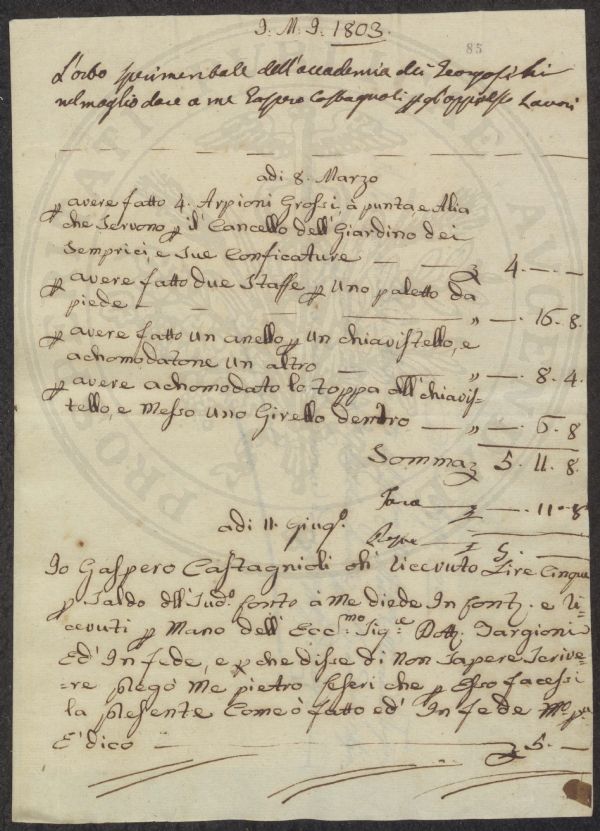 J. M. J. 1803.
85
L'orto sperimentale dell'accademia dei Georgofili
nel maglio dare a me Gaspero Castagnoli p gl'appresso Lavori
adi 8. Marzo
p avere fatto 4. Arpioni Grossi, à punta, e Alia
che Servono p il Cancello dell Giardino dei
Semprici, e sue Conficature — — 4.—.—
p avere fatto due Staffe p uno paletto da
piede — — „ —. 16. 8.
p avere fatto un anello p un chiavistello, e
achomodatone un altro — — „ —. 8. 4.
p avere achomodato la toppa all chiavis-
tello, e Messo uno Girello dentro — „ —. 6. 8
Somma 5. 11. 8.
Tara — 11. 8
adi 11. Giugo.
Resta 5. —
Io Gaspero Castagnioli ohi ricevuto Lire Cinque
p Saldo dll Sudo. Conto à Me diede In Conti. e ri-
cevuti p Mano dell Eccmo. Sige. Dott. Targioni
Ed' In fede, e p che disse di Non Sapere Scrive-
=re pregò Me pietro che p Esso facessi
la presente Come ò fatto ed' In fede Mo. pa.
E' dico — 5. —